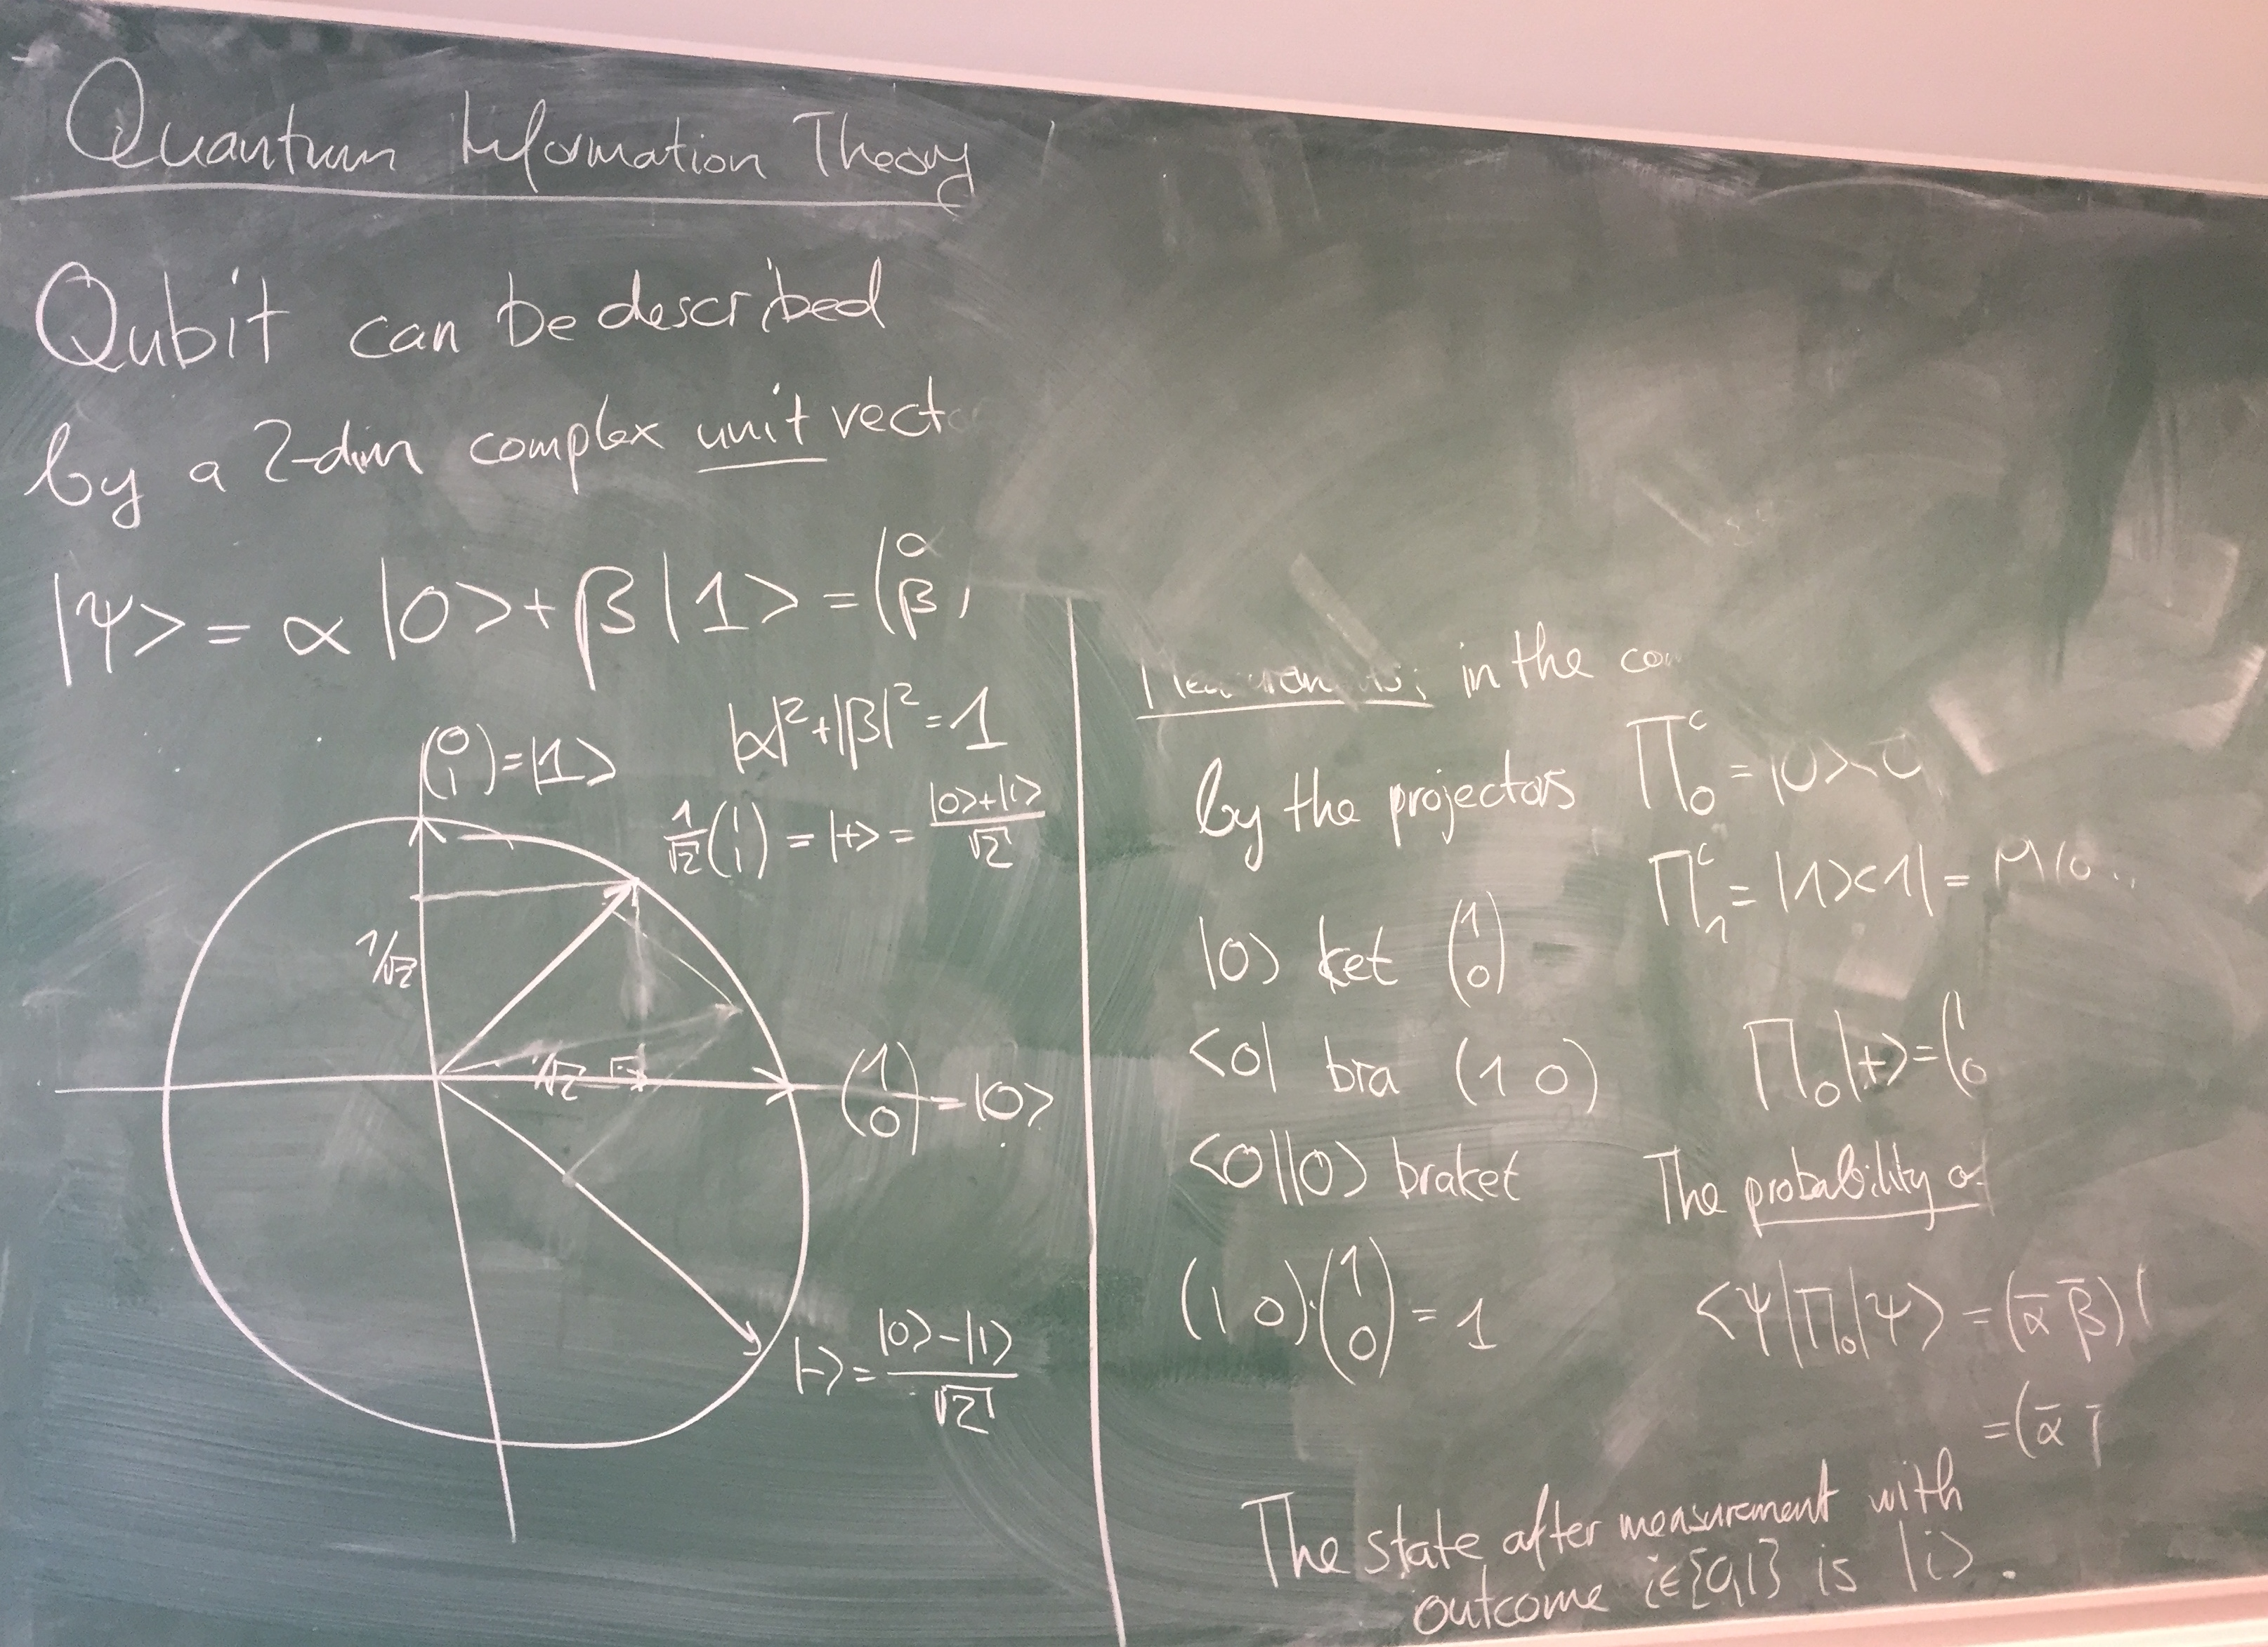 Quantum Information Theory
Qubit can be described
by a 2-dim complex unit vect
|ψ> = α |0> + β |1> = (α β)
|α|² + |β|² = 1
(0 1) = |1>
1/√2 (1 1) = |+> = |0>+|1> / √2
1/√2
1/√2
(1 0) = |0>
|-> = |0>-|1> / √2
in the
by the projectors Π₀ᶜ = |0><0
Π₁ᶜ = |1><1| =
|0> ket (1 0)
<0| bra (1 0)
Π₀|+> = (1 0
<0||0> braket
The probability
(1 0)·(1 0) = 1
<ψ|Π₀|ψ> = (ᾱ β̄) (
= (ᾱ
The state after measurement with
outcome i∈{0,1} is |i>.